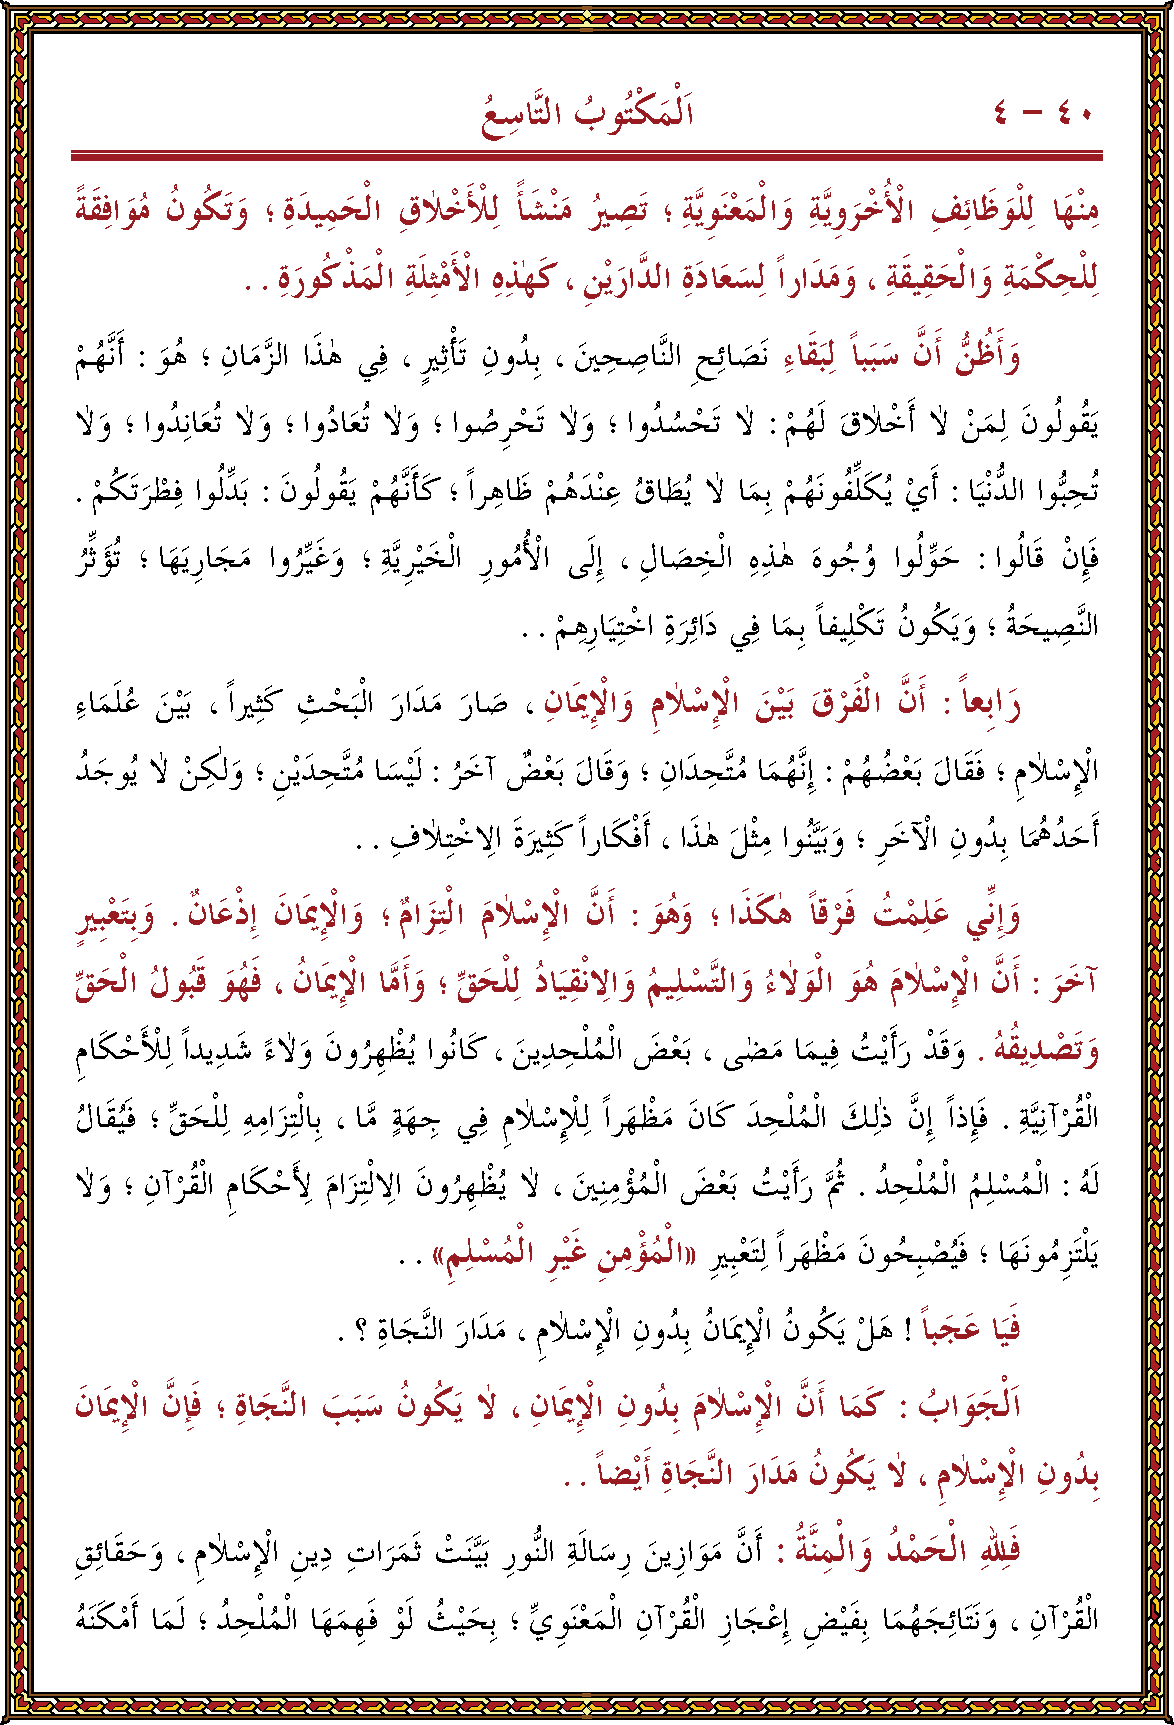 ٤٠ – ٤ اَلْمَكْتُوبُ التَّاسِعُ
مِنْهَا لِلْوَظَائِفِ الْأُخْرَوِيَّةِ وَالْمَعْنَوِيَّةِ ؛ تَصِيرُ مَنْشَأً لِلْأَخْلَاقِ الْحَمِيدَةِ ؛ وَتَكُونُ مُوَافِقَةً
لِلْحِكْمَةِ وَالْحَقِيقَةِ ، وَمَدَاراً لِسَعَادَةِ الدَّارَيْنِ ، كَهٰذِهِ الْأَمْثِلَةِ الْمَذْكُورَةِ . .
وَأَظُنُّ أَنَّ سَبَباً لِبَقَاءِ نَصَائِحِ النَّاصِحِينَ ، بِدُونِ تَأْثِيرٍ ، فِي هٰذَا الزَّمَانِ ؛ هُوَ : أَنَّهُمْ
يَقُولُونَ لِمَنْ لَا أَخْلَاقَ لَهُمْ : لَا تَحْسُدُوا ؛ وَلَا تَحْرِصُوا ؛ وَلَا تُعَادُوا ؛ وَلَا تُعَانِدُوا ؛ وَلَا
تُحِبُّوا الدُّنْيَا : أَيْ يُكَلِّفُونَهُمْ بِمَا لَا يُطَاقُ عِنْدَهُمْ ظَاهِراً ؛ كَأَنَّهُمْ يَقُولُونَ : بَدِّلُوا فِطْرَتَكُمْ .
فَإِنْ قَالُوا : حَوِّلُوا وُجُوهَ هٰذِهِ الْخِصَالِ ، إِلَى الْأُمُورِ الْخَيْرِيَّةِ ؛ وَغَيِّرُوا مَجَارِيَهَا ؛ تُؤَثِّرُ
النَّصِيحَةُ ؛ وَيَكُونُ تَكْلِيفاً بِمَا فِي دَائِرَةِ اخْتِيَارِهِمْ . .
رَابِعاً : أَنَّ الْفَرْقَ بَيْنَ الْإِسْلَامِ وَالْإِيمَانِ ، صَارَ مَدَارَ الْبَحْثِ كَثِيراً ، بَيْنَ عُلَمَاءِ
الْإِسْلَامِ ؛ فَقَالَ بَعْضُهُمْ : إِنَّهُمَا مُتَّحِدَانِ ؛ وَقَالَ بَعْضٌ آخَرُ : لَيْسَا مُتَّحِدَيْنِ ؛ وَلٰكِنْ لَا يُوجَدُ
أَحَدُهُمَا بِدُونِ الْآخَرِ ؛ وَبَيَّنُوا مِثْلَ هٰذَا ، أَفْكَاراً كَثِيرَةَ الِاخْتِلَافِ . .
وَإِنِّي عَلِمْتُ فَرْقاً هٰكَذَا ؛ وَهُوَ : أَنَّ الْإِسْلَامَ الْتِزَامٌ ؛ وَالْإِيمَانَ إِذْعَانٌ . وَبِتَعْبِيرٍ
آخَرَ : أَنَّ الْإِسْلَامَ هُوَ الْوَلَاءُ وَالتَّسْلِيمُ وَالِانْقِيَادُ لِلْحَقِّ ؛ وَأَمَّا الْإِيمَانُ ، فَهُوَ قَبُولُ الْحَقِّ
وَتَصْدِيقُهُ . وَقَدْ رَأَيْتُ فِيمَا مَضٰى ، بَعْضَ الْمُلْحِدِينَ ، كَانُوا يُظْهِرُونَ وَلَاءً شَدِيداً لِلْأَحْكَامِ
الْقُرْآنِيَّةِ . فَإِذاً إِنَّ ذٰلِكَ الْمُلْحِدَ كَانَ مَظْهَراً لِلْإِسْلَامِ فِي جِهَةٍ مَّا ، بِالْتِزَامِهِ لِلْحَقِّ ؛ فَيُقَالُ
لَهُ : الْمُسْلِمُ الْمُلْحِدُ . ثُمَّ رَأَيْتُ بَعْضَ الْمُؤْمِنِينَ ، لَا يُظْهِرُونَ الِالْتِزَامَ لِأَحْكَامِ الْقُرْآنِ ؛ وَلَا
يَلْتَزِمُونَهَا ؛ فَيُصْبِحُونَ مَظْهَراً لِتَعْبِيرِ «الْمُؤْمِنِ غَيْرِ الْمُسْلِمِ» . .
فَيَا عَجَباً ! هَلْ يَكُونُ الْإِيمَانُ بِدُونِ الْإِسْلَامِ ، مَدَارَ النَّجَاةِ ؟ .
اَلْجَوَابُ : كَمَا أَنَّ الْإِسْلَامَ بِدُونِ الْإِيمَانِ ، لَا يَكُونُ سَبَبَ النَّجَاةِ ؛ فَإِنَّ الْإِيمَانَ
بِدُونِ الْإِسْلَامِ ، لَا يَكُونُ مَدَارَ النَّجَاةِ أَيْضاً . .
فَلِلّٰهِ الْحَمْدُ وَالْمِنَّةُ : أَنَّ مَوَازِينَ رِسَالَةِ النُّورِ بَيَّنَتْ ثَمَرَاتِ دِينِ الْإِسْلَامِ ، وَحَقَائِقِ
الْقُرْآنِ ، وَنَتَائِجَهُمَا بِفَيْضِ إِعْجَازِ الْقُرْآنِ الْمَعْنَوِيِّ ؛ بِحَيْثُ لَوْ فَهِمَهَا الْمُلْحِدُ ؛ لَمَا أَمْكَنَهُ